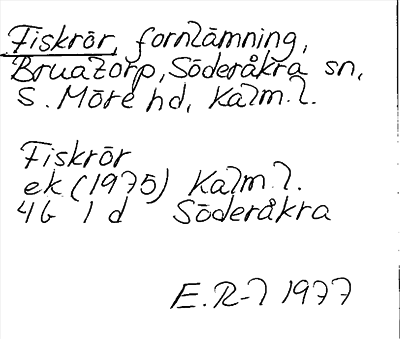 Fiskrör, fornlämning,
Bruatorp, Söderåkra sn,
S. Möre hd, Kalm. l.
Fiskrör
ek (1975) Kalm. l.
4G 1 d Söderåkra
E. R-l 1977